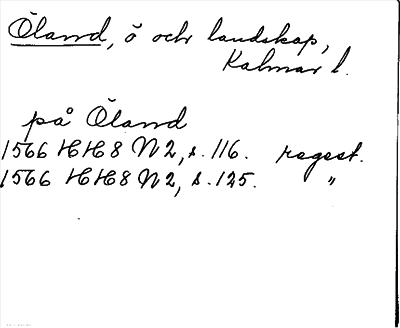 Öland, ö och landskap,
Kalmar l.
på Öland
1566 HH8 N2, s. 116. regest.
1566 HH8 N2, s. 125. "